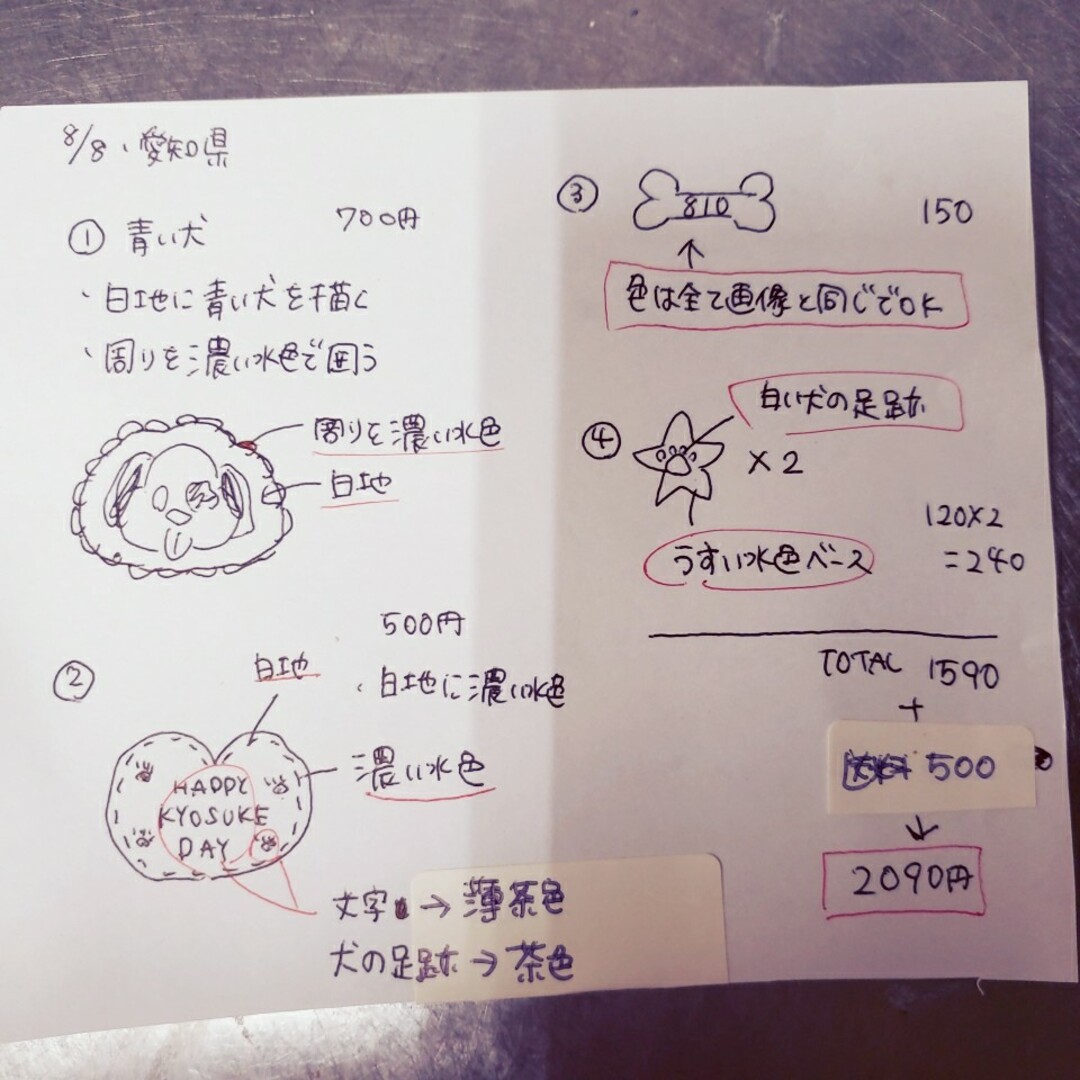 8/8、愛知県
① 青い犬
700円
、白地に青い犬を描く
、周りを濃い水色で囲う
周りを濃い水色
白地
500円
②
白地
、白地に濃い水色
濃い水色
HAPPY
KYOSUKE
DAY
文字 → 薄茶色
犬の足跡 → 茶色
③
810
150
色は全て画像と同じでOK
白い犬の足跡
④
×2
うすい水色ベース
120×2
=240
TOTAL 1590
+
送料 500
↓
2090円